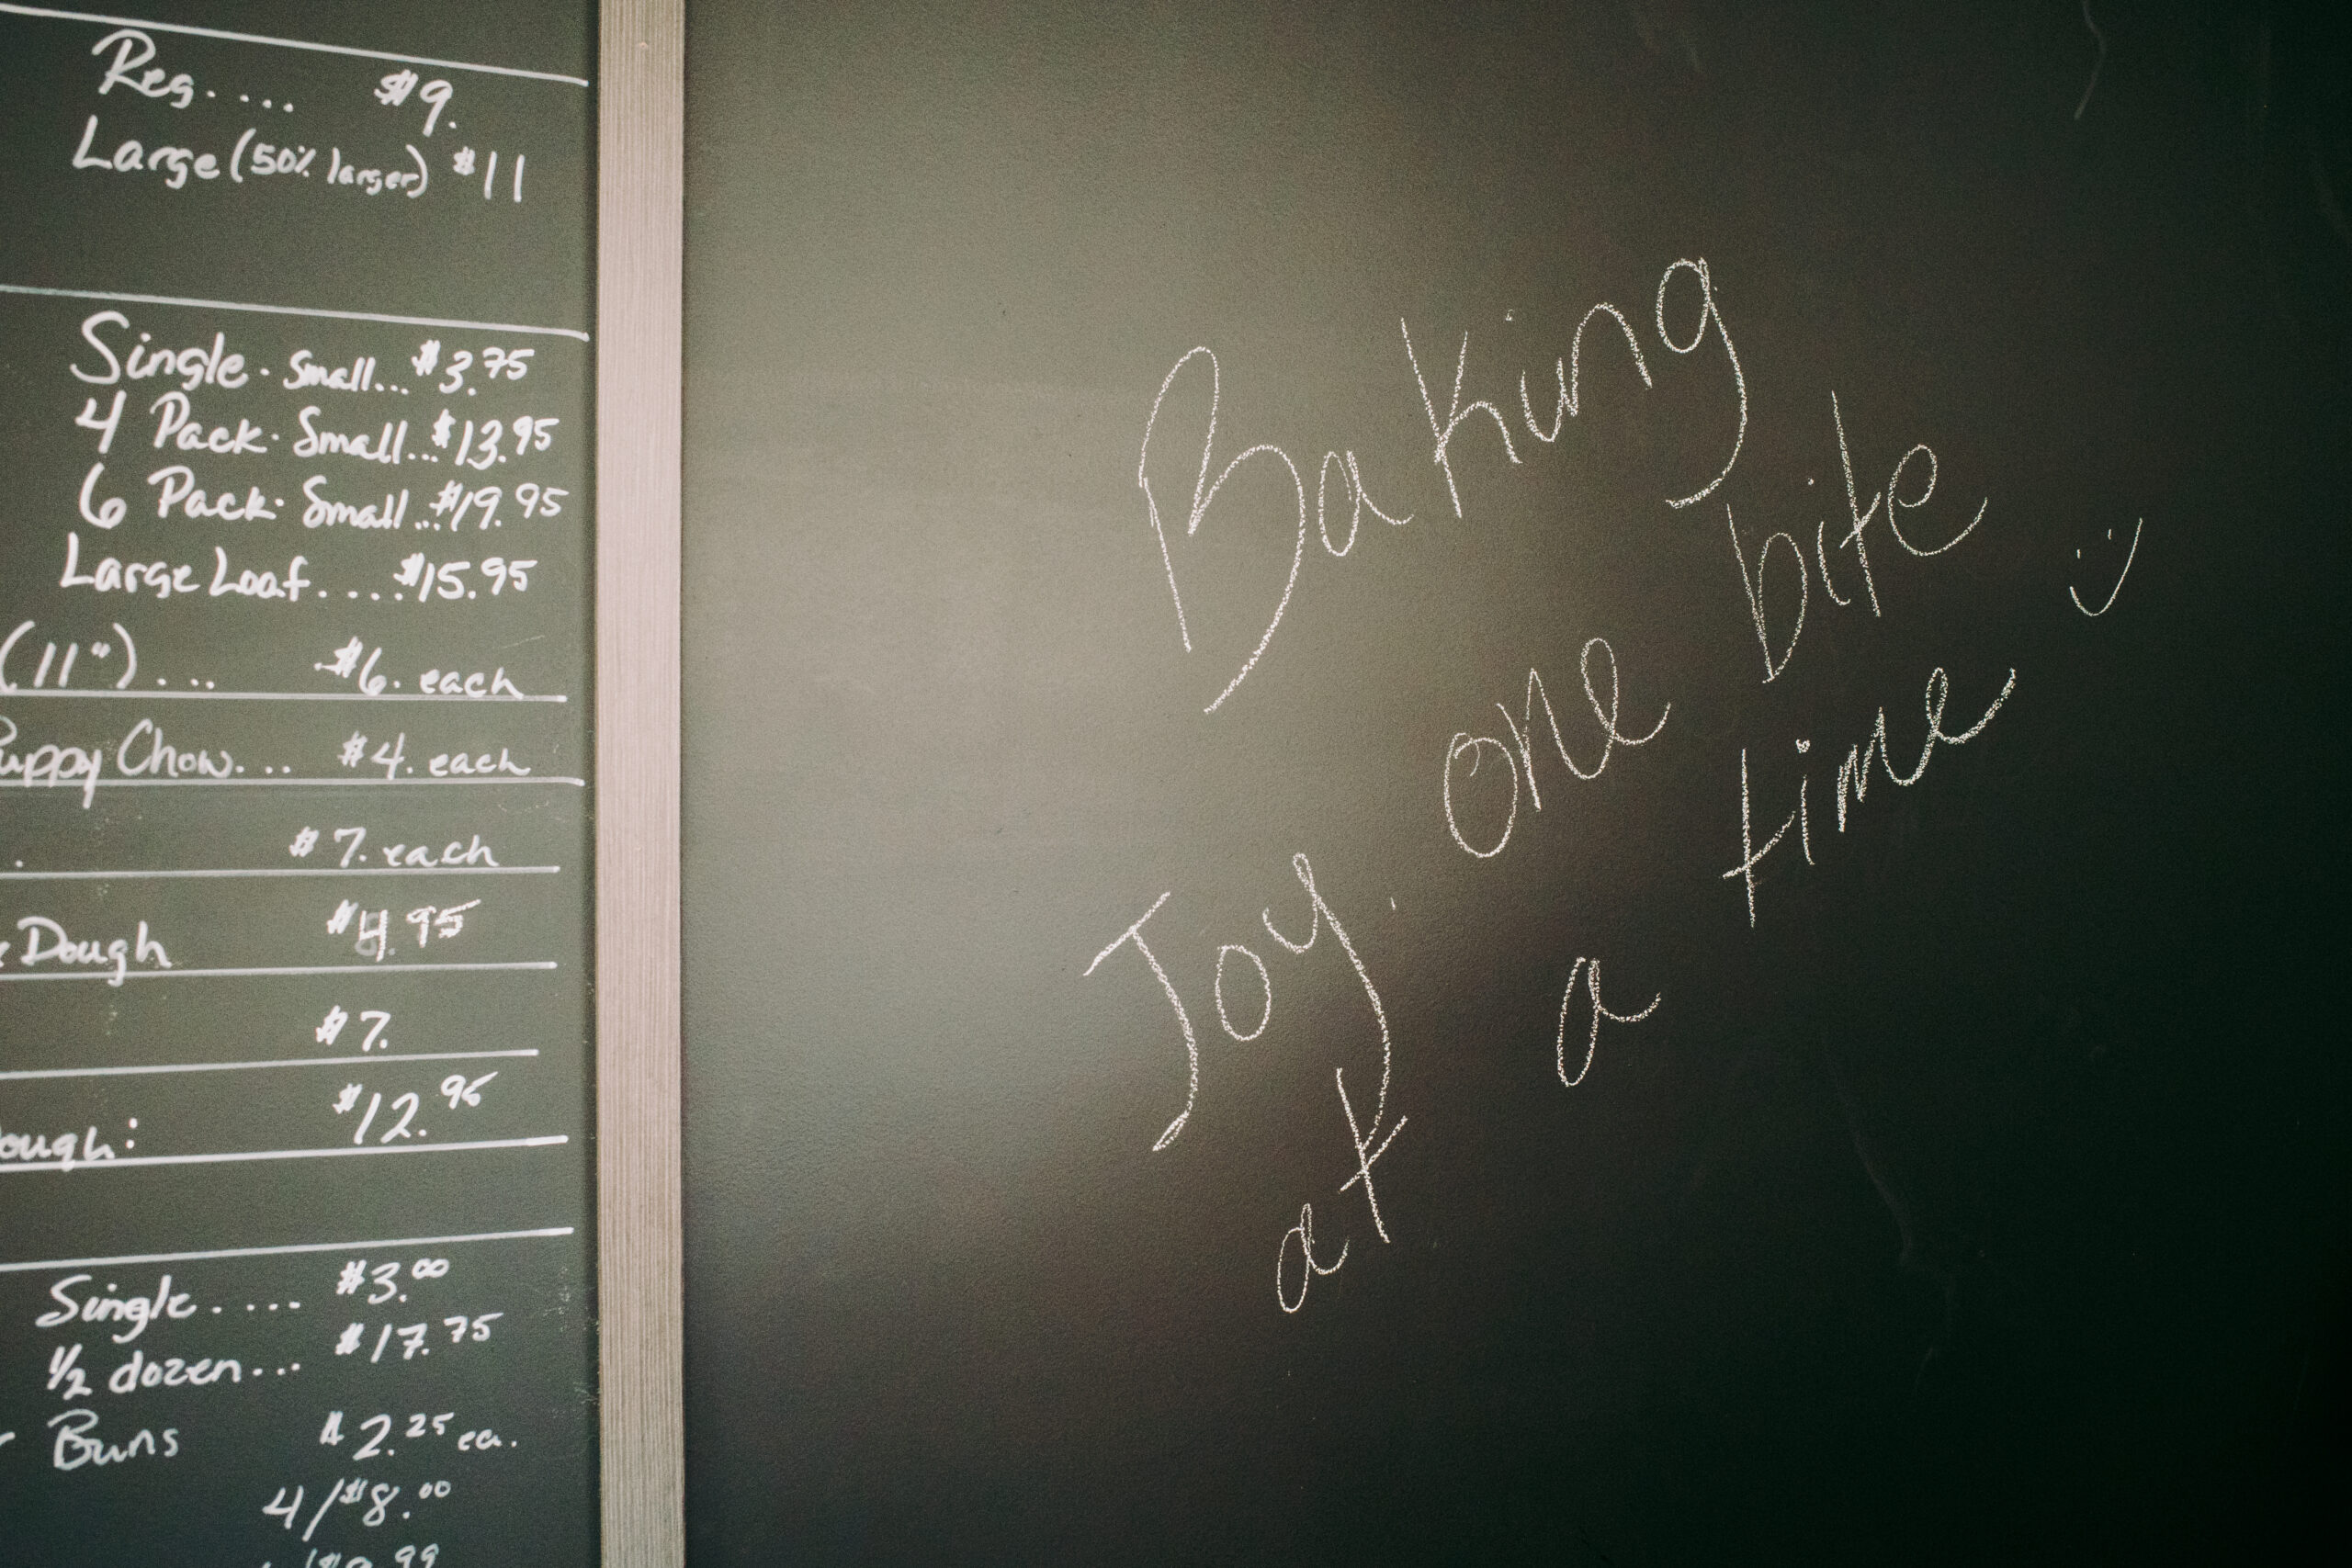 Reg.... $9.
Large (50% larger) $11
Single. Small... $3.75
4 Pack. Small... $13.95
6 Pack. Small... $19.95
Large Loaf.... $15.95
(11") ... $6. each
Puppy Chow... $4. each
. $7. each
Dough $4.95
$7.
$12.95
Single..... $3.00
1/2 dozen... $17.75
Buns $2.25 ea.
4/$8.00
Baking
Joy, one bite
at a time :)